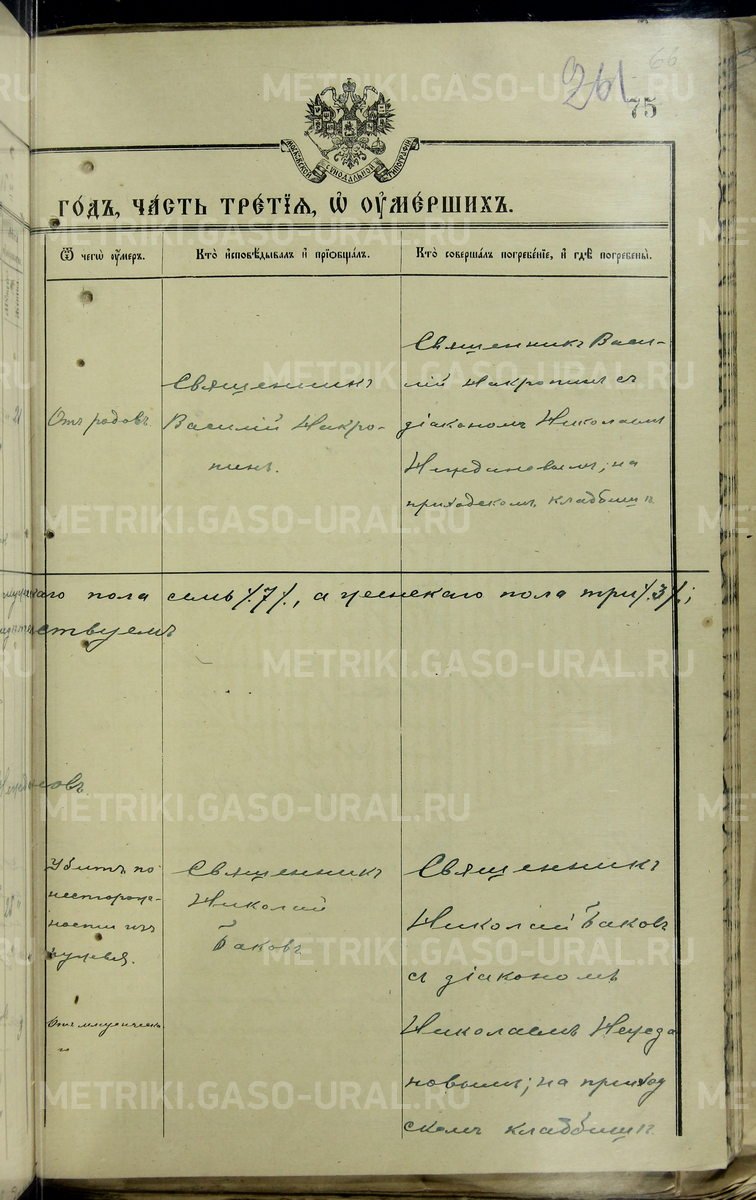 261
66
75
МОСКОВСКОЙ СѴНОДАЛЬНОЙ ТИПОГРАФІИ
ГО́ДЪ, ЧА́СТЬ ТРЕ́ТІЯ, Ѽ ОУ҆МЕ́РШИХЪ.
Ѿ чегѡ̀ оу҆́меръ.
Кто̀ и҆сповѣ́дывалъ и҆ прїѡбща́лъ.
Кто̀ соверша́лъ погребе́нїе, и҆ гдѣ̀ погребены̀.
Отъ родовъ.
Священникъ
Василій Накро-
пинъ.
Священникъ Васи-
лій Накропинъ съ
діакономъ Николаемъ
на
приходскомъ кладбищѣ
пола семь /.7/., а женскаго пола три /.3/.;
ствуемъ
Убитъ по
неосторож-
ности изъ
ружья.
Священникъ
Николай
Баковъ
Священникъ
Николай Баковъ
съ діакономъ
Николаемъ
новымъ; на приход
скомъ кладбищѣ
METRIKI.GASO-URAL.RU